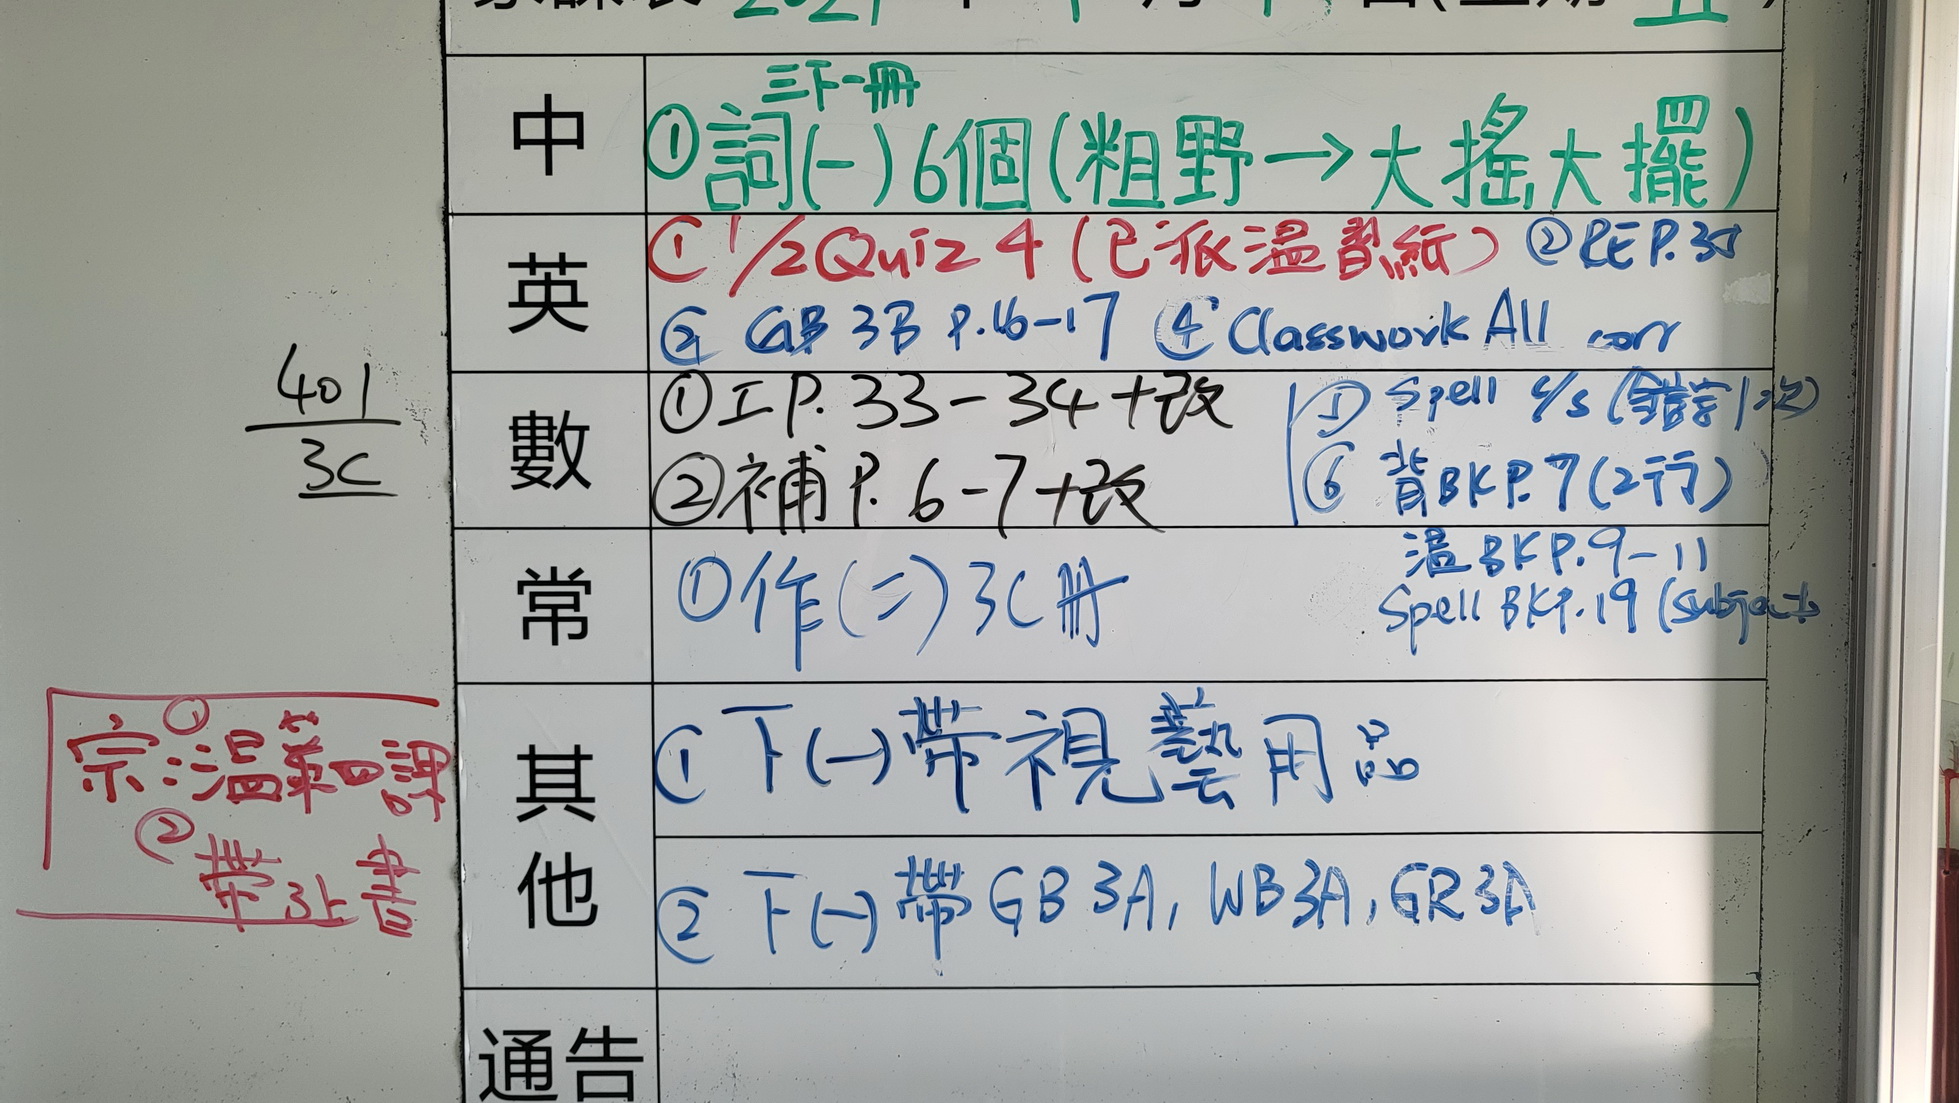 中
三下一冊
①詞(一)6個(粗野→大搖大擺)
英
① 1/2 Quiz 4 (已派溫習紙) ② RE P.35
③ GB 3B P.16-17 ④ Classwork All corr
數
① 工 P. 33-34+改
② 補 P. 6-7+改
⑤ Spell c/s (錯字1次)
⑥ 背 BK P.7 (2行)
溫 BK P.9-11
Spell BK P.19 (subjects
常
① 作(二) 3C冊
其他
① 下(一)帶視藝用品
② 下(一)帶 GB 3A, WB 3A, GR 3A
通告
401
3C
宗:①溫第四課
②帶3上書